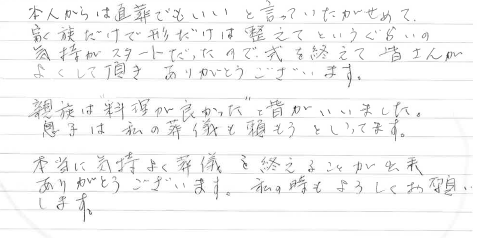 本人からは直葬でもいいと言っていたがせめて、
家族だけで形だけは整えてというぐらいの
気持がスタートだったので、式を終えて皆さんが
よくして頂きありがとうございます。
親族は"料理が良かった"と皆がいいました。
息子は私の葬儀も頼もうといってます。
本当に気持よく葬儀を終えることが出来
ありがとうございます。私の時もよろしくお願い
します。